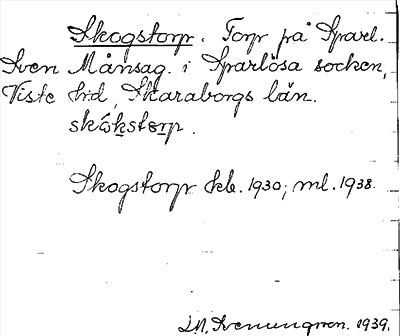 Skogstorp. Torp på Sparl.
Sven Månsag. i Sparlösa socken,
Viste hd, Skaraborgs län.
skókstorp.
Skogstorp kb. 1930; ml. 1938.
1939.